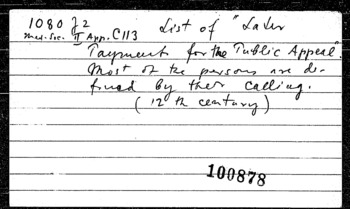 1080 J2
Mus.-Soc. II App. C113
List of "Later
Payments for the Public Appeal".
Most of the persons are de-
fined by their calling.
(12th century)
100878